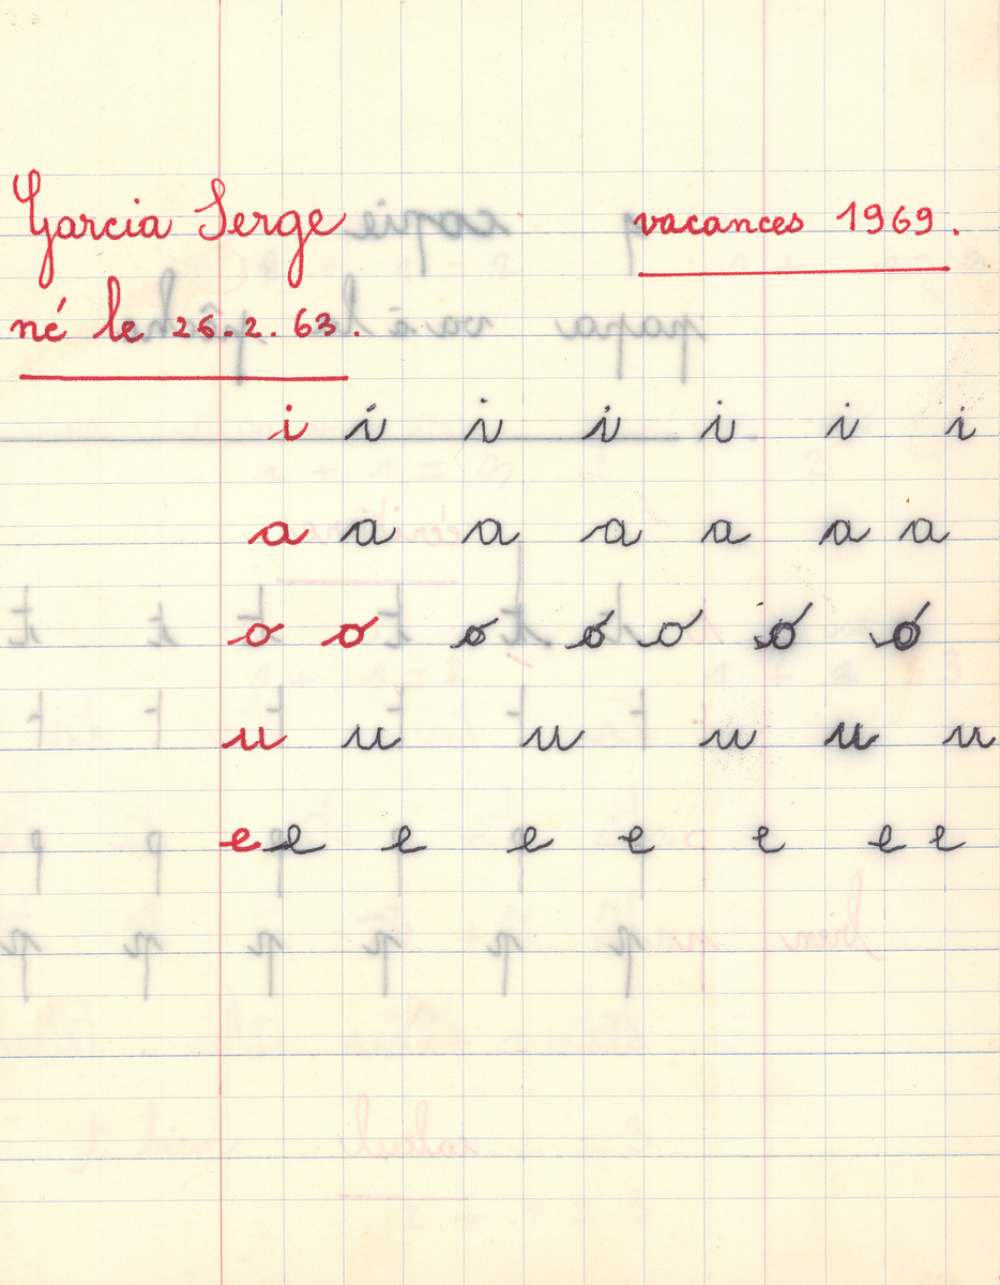 Garcia Serge vacances 1969.
né le 26.2.63.
i i i i i i i
a a a a a a a
o o o o o o o
u u u u u u
e e e e e e e e